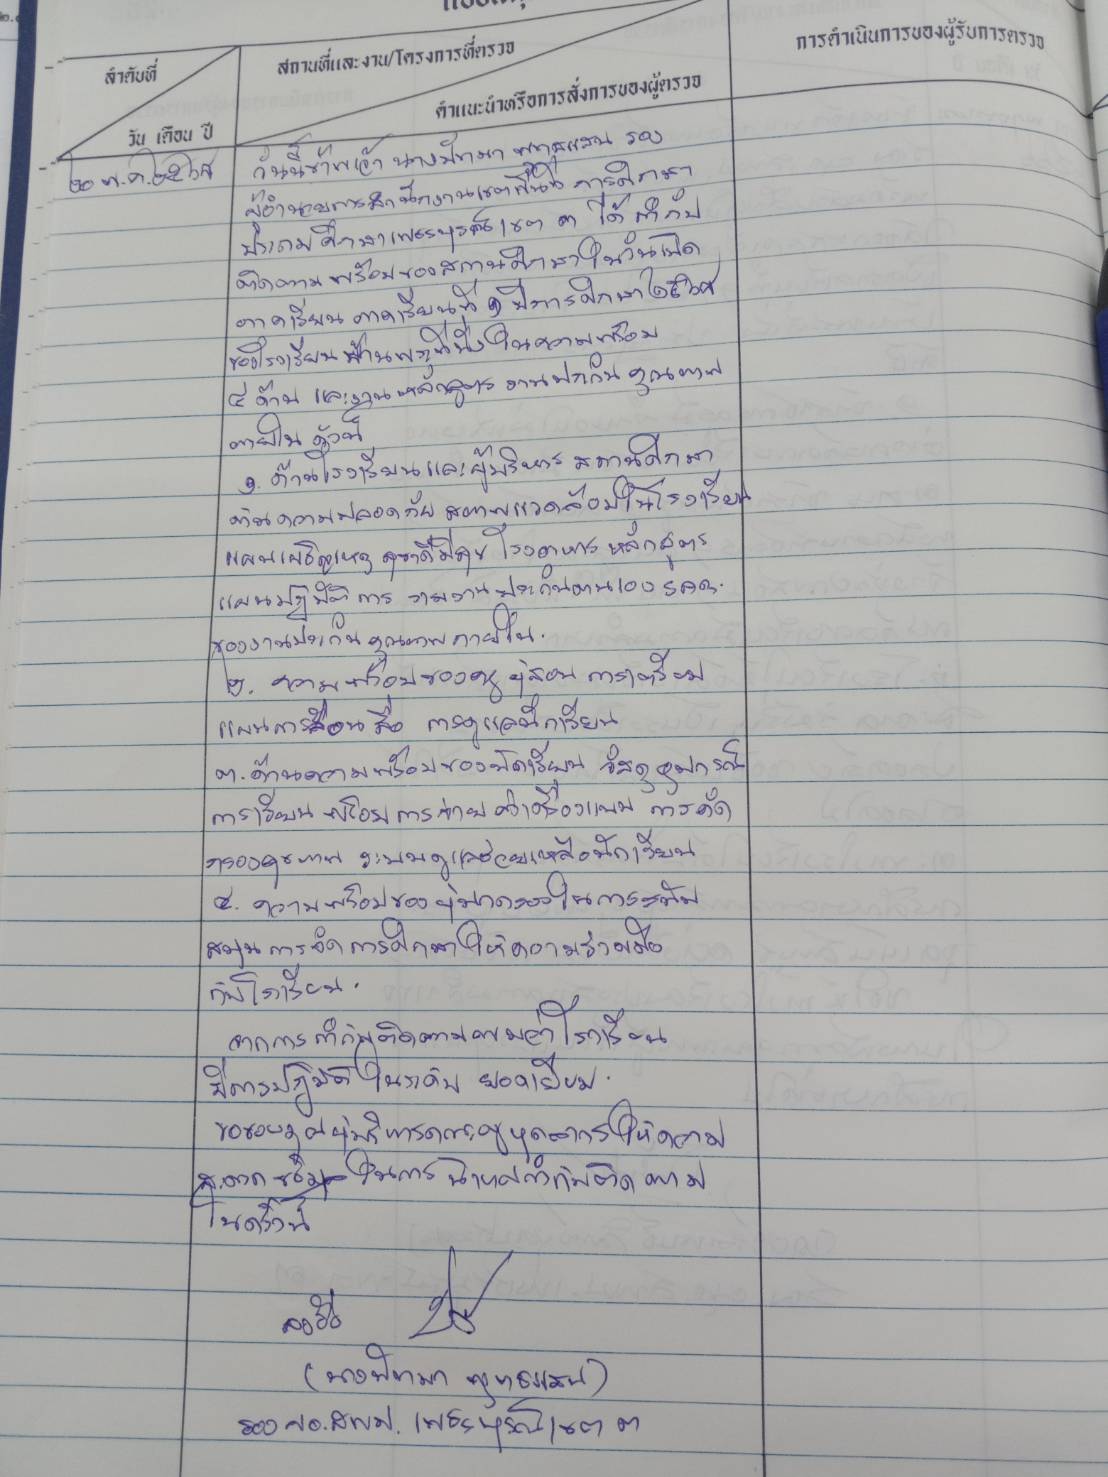 ลำดับที่
สถานที่และงาน/โครงการที่ตรวจ
การดำเนินการของผู้รับการตรวจ
คำแนะนำหรือการสั่งการของผู้ตรวจ
วัน เดือน ปี
๒๐ พ.ค.๒๕๖๘
วันนี้ข้าพเจ้า นางปัทมา พุทธแสน รอง
ผู้อำนวยการสำนักงานเขตพื้นที่ การศึกษา
ประถมศึกษาเพชรบูรณ์ เขต ๓ ได้ กำกับ
ติดตาม พร้อมของสถานศึกษาในวันเปิด
ภาคเรียน ภาคเรียนที่ ๑ ปีการศึกษา ๒๕๖๘
ของโรงเรียนบ้าน ในความพร้อม
๔ ด้าน และงานหลักสูตร งานประกันคุณภาพ
ภายใน ดังนี้
๑. ด้านโรงเรียนและผู้บริหาร สถานศึกษา
ด้านความปลอดภัย สภาพแวดล้อมในโรงเรียน
แผนเผชิญเหตุ สุขาดีมีสุข โรงอาหาร หลักสูตร
แผนปฏิบัติ การ รายงานประเมินตนเอง SAR.
ของงานประกันคุณภาพภายใน.
๒. ความพร้อมของครู ผู้สอน การเตรียม
แผนการสอน สื่อ การดูแลนักเรียน
๓. ด้านความพร้อมของนักเรียน วัสดุอุปกรณ์
การเรียน พร้อม การจ่ายค่าเครื่องแบบ การคัด
กรองสุขภาพ ระบบดูแลช่วยเหลือนักเรียน
๔. ความพร้อมของผู้ปกครองในการสนับ
สนุน การจัดการศึกษาให้ความร่วมมือ
กับโรงเรียน.
จากการกำกับติดตามพบว่าโรงเรียน
มีการปฏิบัติในระดับ ยอดเยี่ยม.
ขอขอบคุณผู้บริหารคณะครูบุคลากรให้ความ
ในการ นิเทศกำกับติดตาม
ในครั้งนี้
ลงชื่อ
(นางปัทมา พุทธแสน)
รอง ผอ.สพป. เพชรบูรณ์ เขต ๓